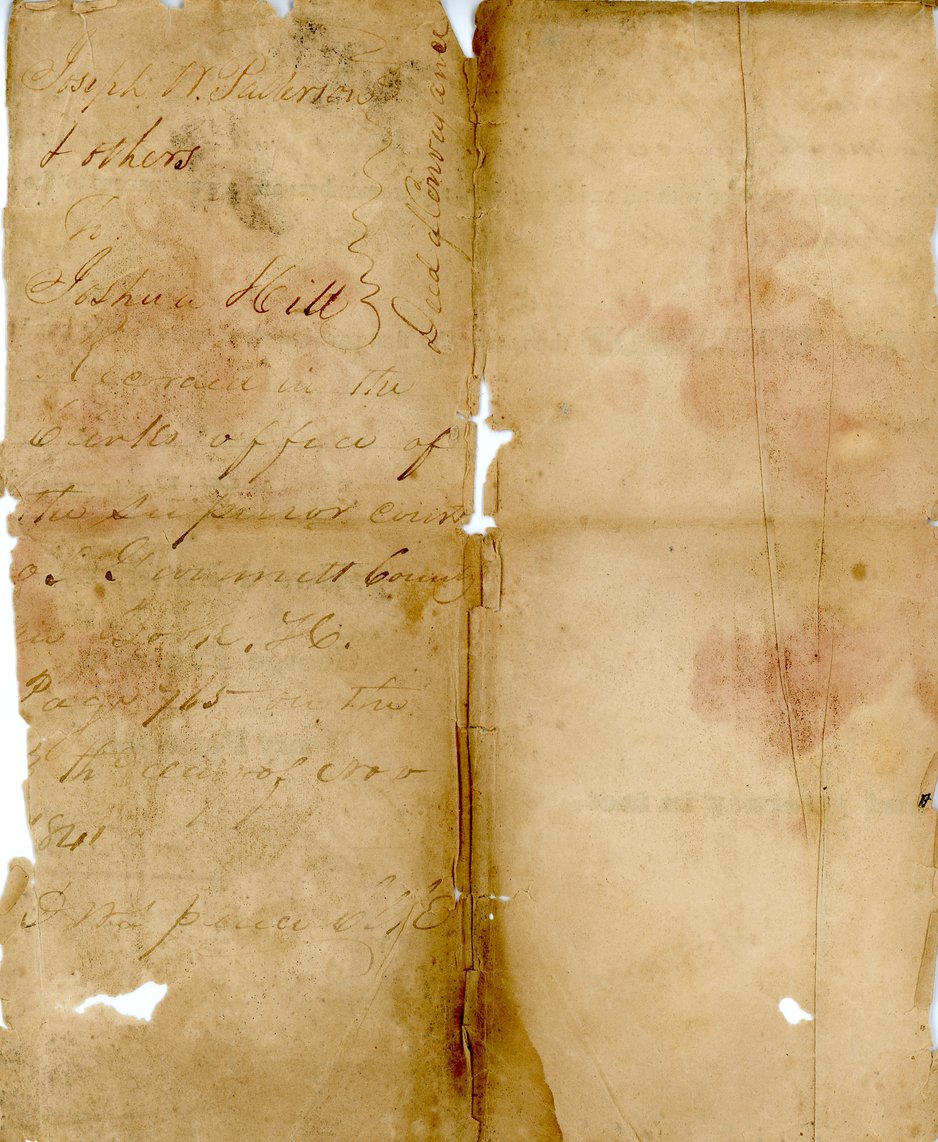 Joseph W. Patterson
& others
To
Joshua Hill
Deed of Conveyance
Recorded in the
Clerks office of
the superior court
of Gwinnett County
in Book, H.
Page 765 on the
th day of Nov
1841